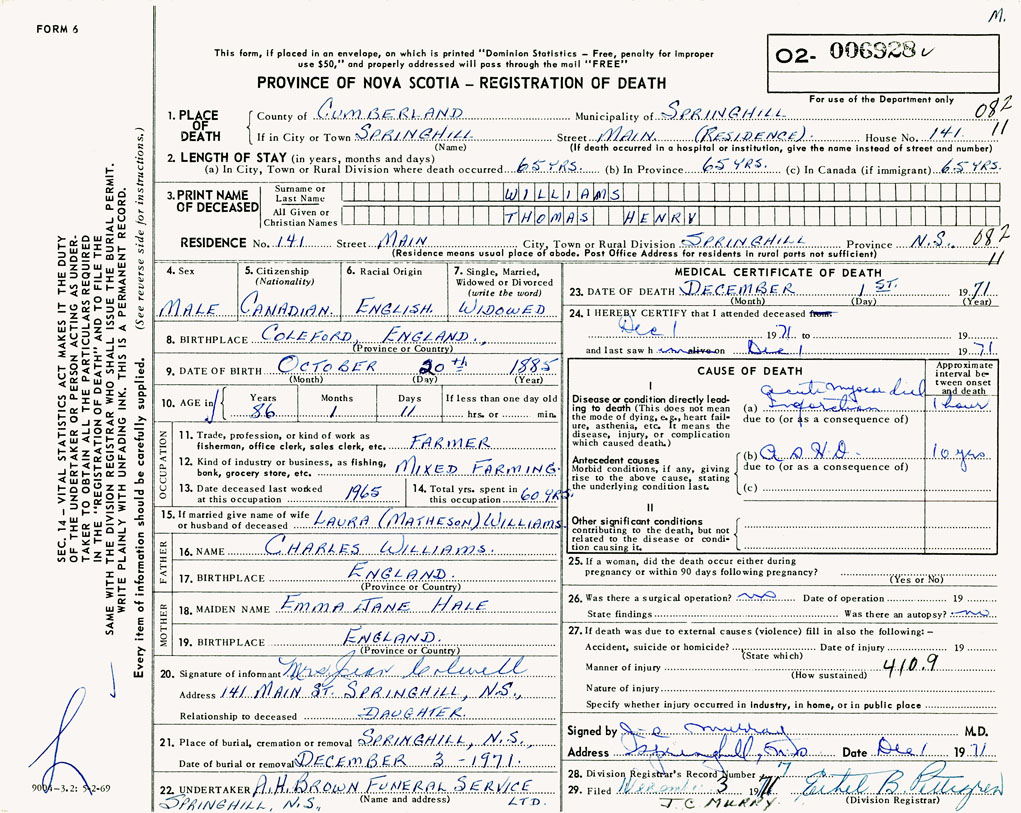 M.
FORM 6
This form, if placed in an envelope, on which is printed "Dominion Statistics – Free, penalty for improper
use $50," and properly addressed will pass through the mail "FREE"
O2- 006928
PROVINCE OF NOVA SCOTIA – REGISTRATION OF DEATH
For use of the Department only
1. PLACE OF DEATH
County of CUMBERLAND Municipality of SPRINGHILL 082
If in City or Town SPRINGHILL Street MAIN (RESIDENCE). House No. 141. 11
(Name) (If death occurred in a hospital or institution, give the name instead of street and number)
2. LENGTH OF STAY (in years, months and days)
(a) In City, Town or Rural Division where death occurred 65 YRS. (b) In Province 65 YRS. (c) In Canada (if immigrant) 65 YRS.
3. PRINT NAME OF DECEASED
Surname or Last Name WILLIAMS
All Given or Christian Names THOMAS HENRY
RESIDENCE No. 141 Street MAIN City, Town or Rural Division SPRINGHILL Province N.S. 082
(Residence means usual place of abode. Post Office Address for residents in rural parts not sufficient) 11
4. Sex
MALE
5. Citizenship
(Nationality)
CANADIAN.
6. Racial Origin
ENGLISH.
7. Single, Married,
Widowed or Divorced
(write the word)
WIDOWED
8. BIRTHPLACE COLEFORD, ENGLAND.
(Province or Country)
9. DATE OF BIRTH OCTOBER 20th 1885
(Month) (Day) (Year)
10. AGE in
Years Months Days If less than one day old
86 1 11 hrs. or min.
OCCUPATION
11. Trade, profession, or kind of work as
fisherman, office clerk, sales clerk, etc. FARMER
12. Kind of industry or business, as fishing,
bank, grocery store, etc. MIXED FARMING.
13. Date deceased last worked
at this occupation 1965
14. Total yrs. spent in
this occupation 60 YRS.
15. If married give name of wife
or husband of deceased LAURA (MATHESON) WILLIAMS.
FATHER
16. NAME CHARLES WILLIAMS.
17. BIRTHPLACE ENGLAND.
(Province or Country)
MOTHER
18. MAIDEN NAME EMMA JANE HALE
19. BIRTHPLACE ENGLAND.
(Province or Country)
20. Signature of informant Mrs Jean Colwell
Address 141 MAIN ST. SPRINGHILL, N.S.,
Relationship to deceased DAUGHTER.
21. Place of burial, cremation or removal SPRINGHILL, N.S.,
Date of burial or removal DECEMBER 3 -1971.
22. UNDERTAKER A.H. BROWN FUNERAL SERVICE
SPRINGHILL, N.S., (Name and address) LTD.
MEDICAL CERTIFICATE OF DEATH
23. DATE OF DEATH DECEMBER 1 ST. 1971
(Month) (Day) (Year)
24. I HEREBY CERTIFY that I attended deceased from
Dec 1 1971 to 19
and last saw h alive on Dec 1 1971
CAUSE OF DEATH
Approximate
interval be-
tween onset
and death
I
Disease or condition directly lead-
ing to death (This does not mean
the mode of dying, e.g., heart fail-
ure, asthenia, etc. It means the
disease, injury, or complication
which caused death.)
(a) acute myocardial
Infarction 1 hour
due to (or as a consequence of)
Antecedent causes
Morbid conditions, if any, giving
rise to the above cause, stating
the underlying condition last.
(b) A S H D. 10 yrs.
due to (or as a consequence of)
(c)
II
Other significant conditions
contributing to the death, but not
related to the disease or condi-
tion causing it.
25. If a woman, did the death occur either during
pregnancy or within 90 days following pregnancy?
(Yes or No)
26. Was there a surgical operation? no Date of operation 19
State findings Was there an autopsy? no
27. If death was due to external causes (violence) fill in also the following: –
Accident, suicide or homicide? Date of injury 19
(State which)
Manner of injury 410.9
(How sustained)
Nature of injury
Specify whether injury occurred in industry, in home, or in public place
Signed by J. C Murray M.D.
Address Springhill, N.S Date Dec 1 1971
28. Division Registrar's Record Number 7
29. Filed December 3 1971 Ethel B. Pettigrew
J.C MURRY. (Division Registrar)
SEC. 14 – VITAL STATISTICS ACT MAKES IT THE DUTY
OF THE UNDERTAKER OR PERSON ACTING AS UNDER-
TAKER TO OBTAIN ALL THE PARTICULARS REQUIRED
IN THE "REGISTRATION OF DEATH" AND TO FILE THE
SAME WITH THE DIVISION REGISTRAR WHO SHALL ISSUE THE BURIAL PERMIT.
WRITE PLAINLY WITH UNFADING INK. THIS IS A PERMANENT RECORD.
Every item of information should be carefully supplied. (See reverse side for instructions.)
9004–3.2: 5-2-69